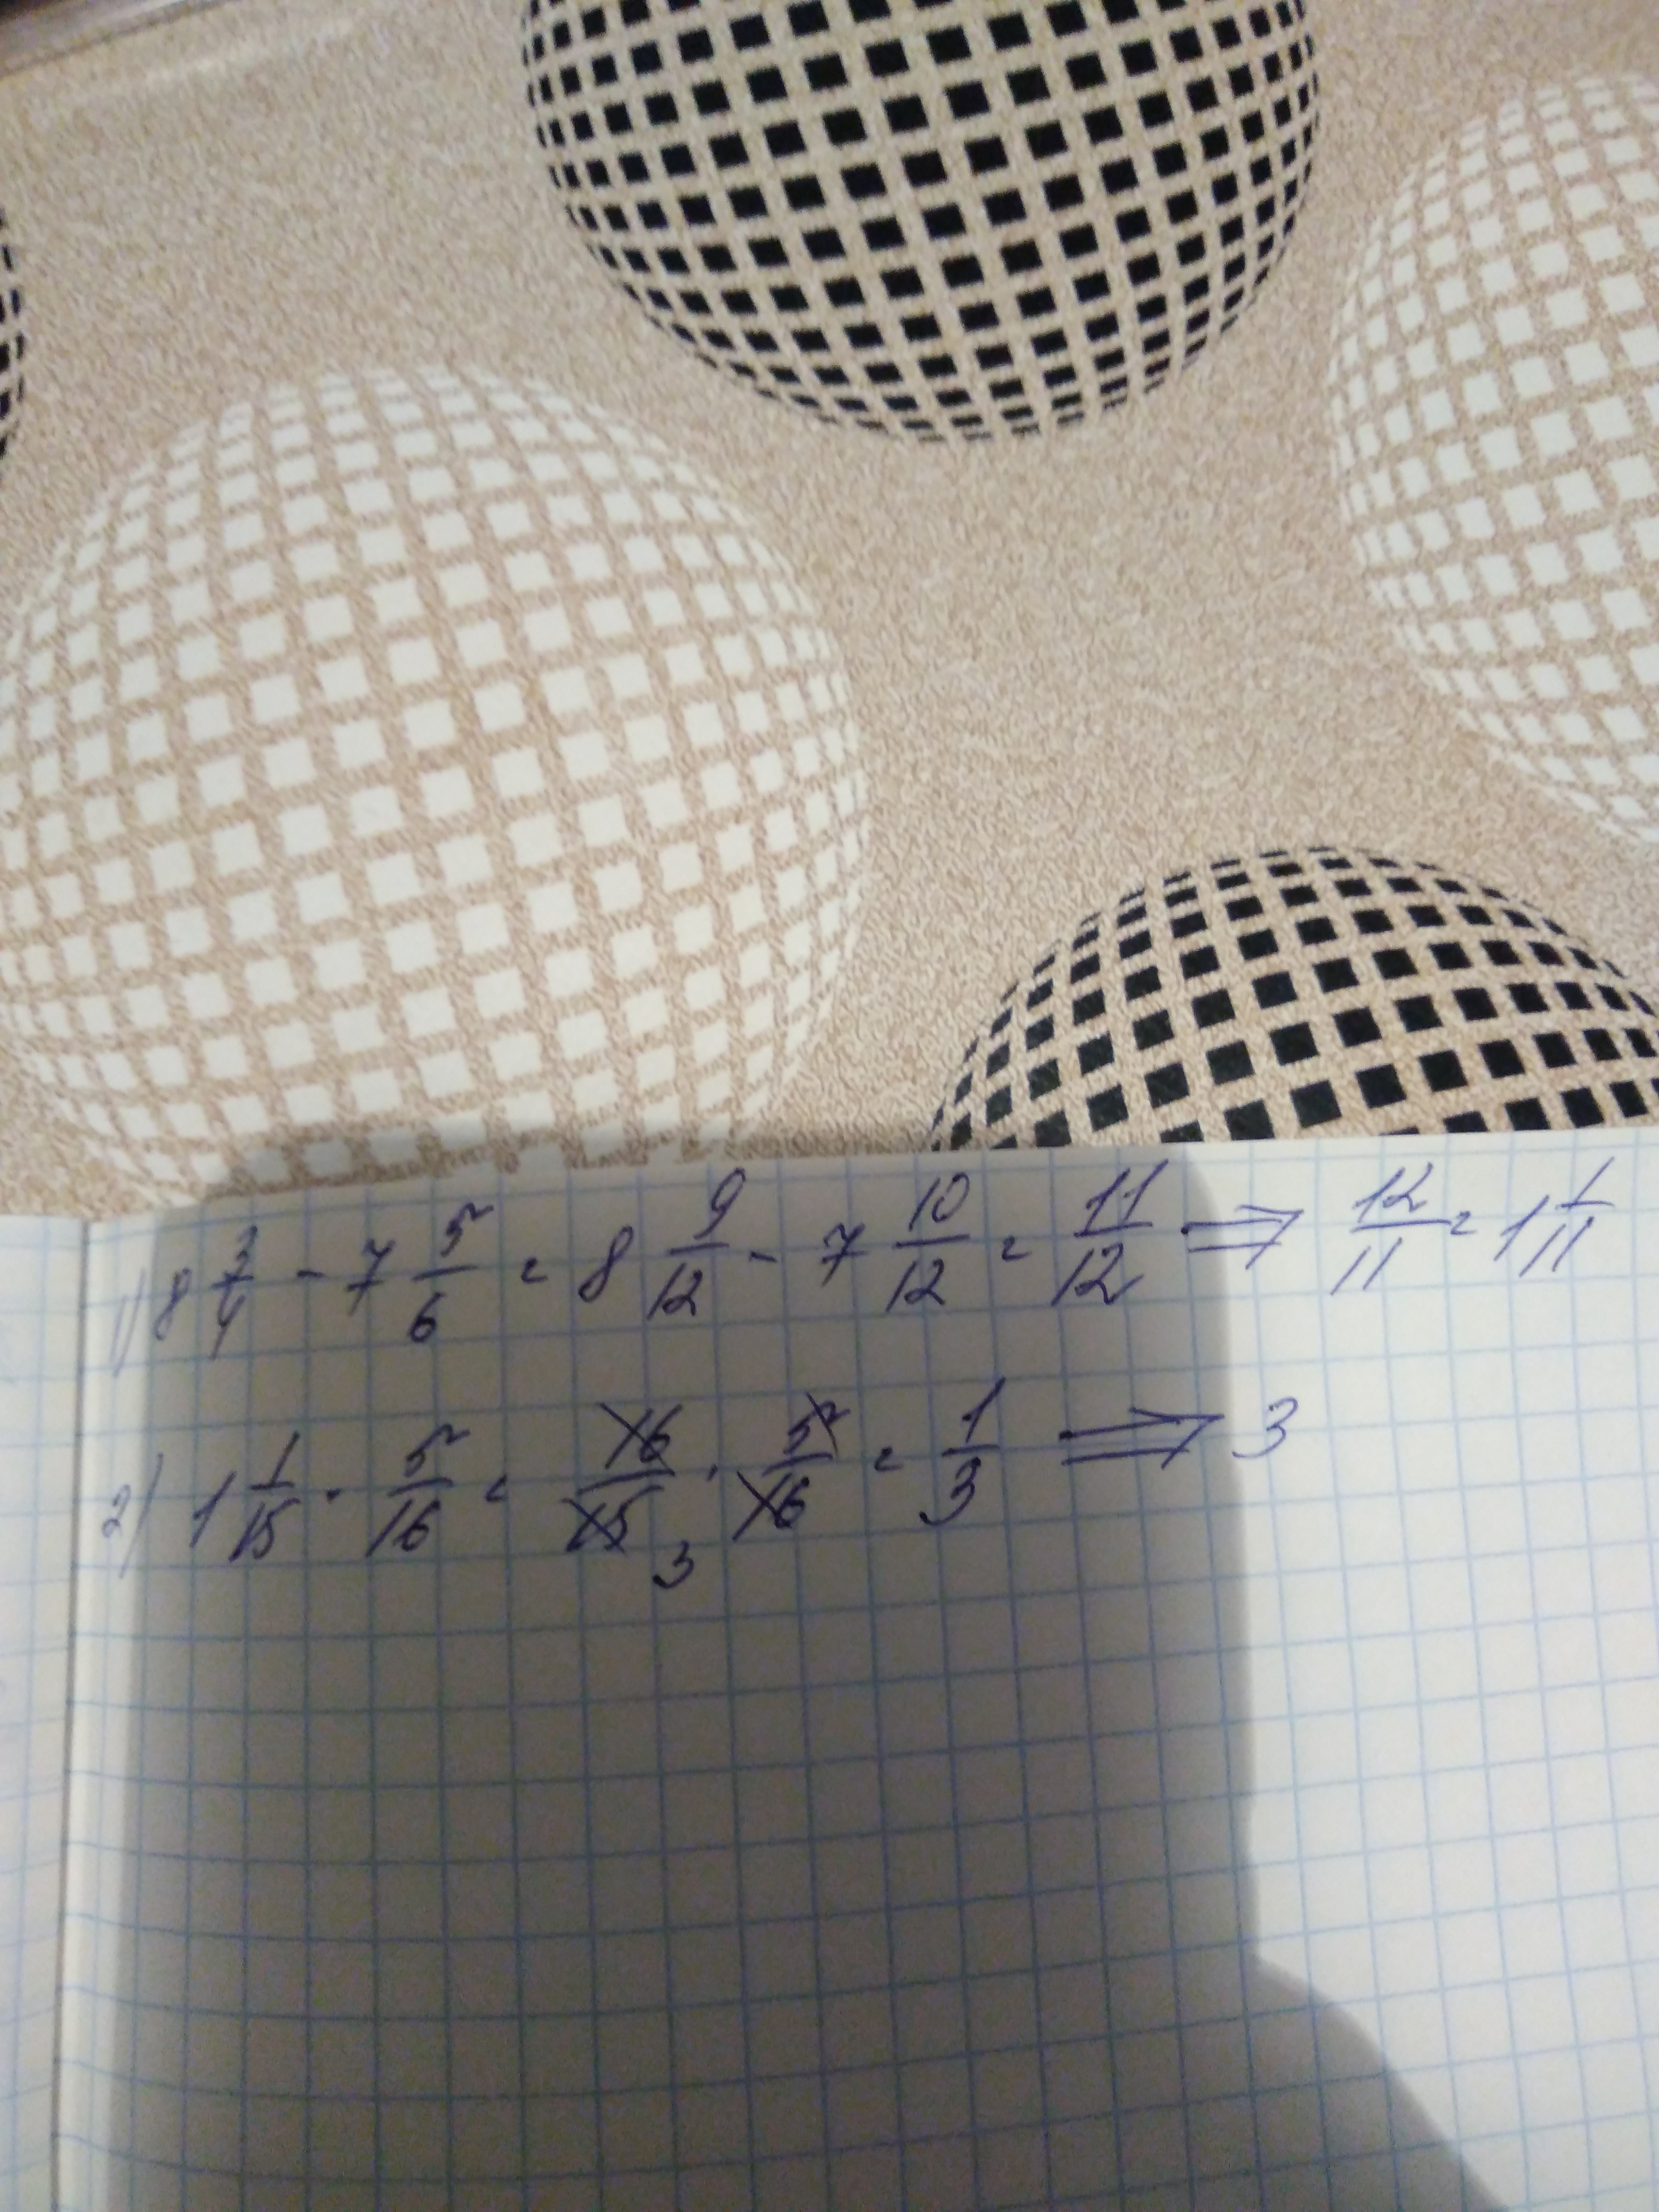 1) 8 3/4 - 7 5/6 = 8 9/12 - 7 10/12 = 11/12 ⟹ 12/11 = 1 1/11
2) 1 1/15 · 5/16 = 16/15 3 · 5/16 = 1/3 ⟹ 3